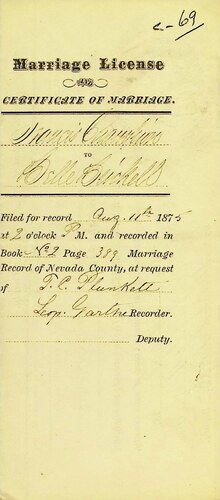 c-69
Marriage License
AND
CERTIFICATE OF MARRIAGE.
Francis
TO
Belle
Filed for record Aug. 11th 1875
at 2 o'clock P M. and recorded in
Book No 2 Page 389 Marriage
Record of Nevada County, at request
of T. C. Plunkett
Leop. Garthe Recorder.
Deputy.